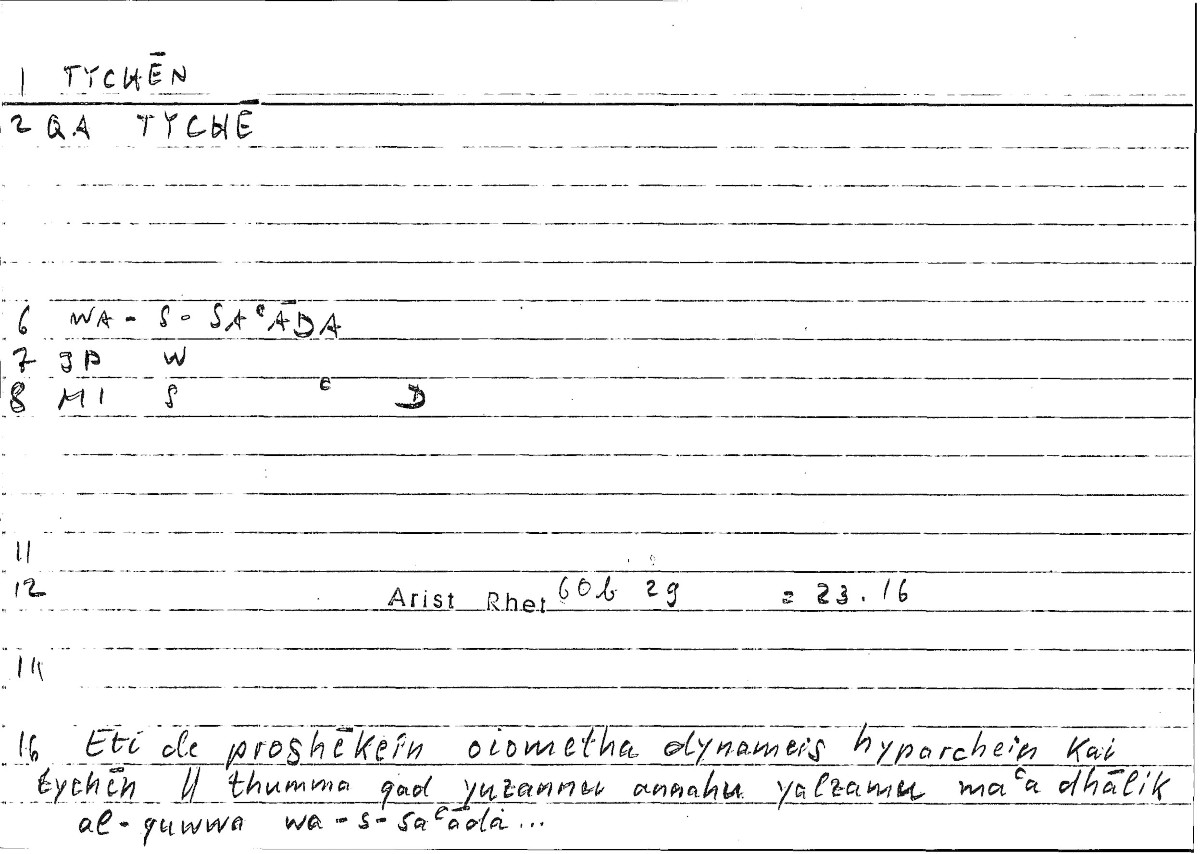 1 TYCHĒN
2 QA TYCHĒ
6 WA - S - SAʿĀDA
7 JP W
8 MI S ʿ D
11
12 Arist Rhet 60b 29 = 23.16
14
16 Eti de proshēkein oiometha dynameis hyparchein kai
tychēn || thumma qad yuzannu annahu yalzamu maʿa dhālik
al-quwwa wa-s-saʿāda...